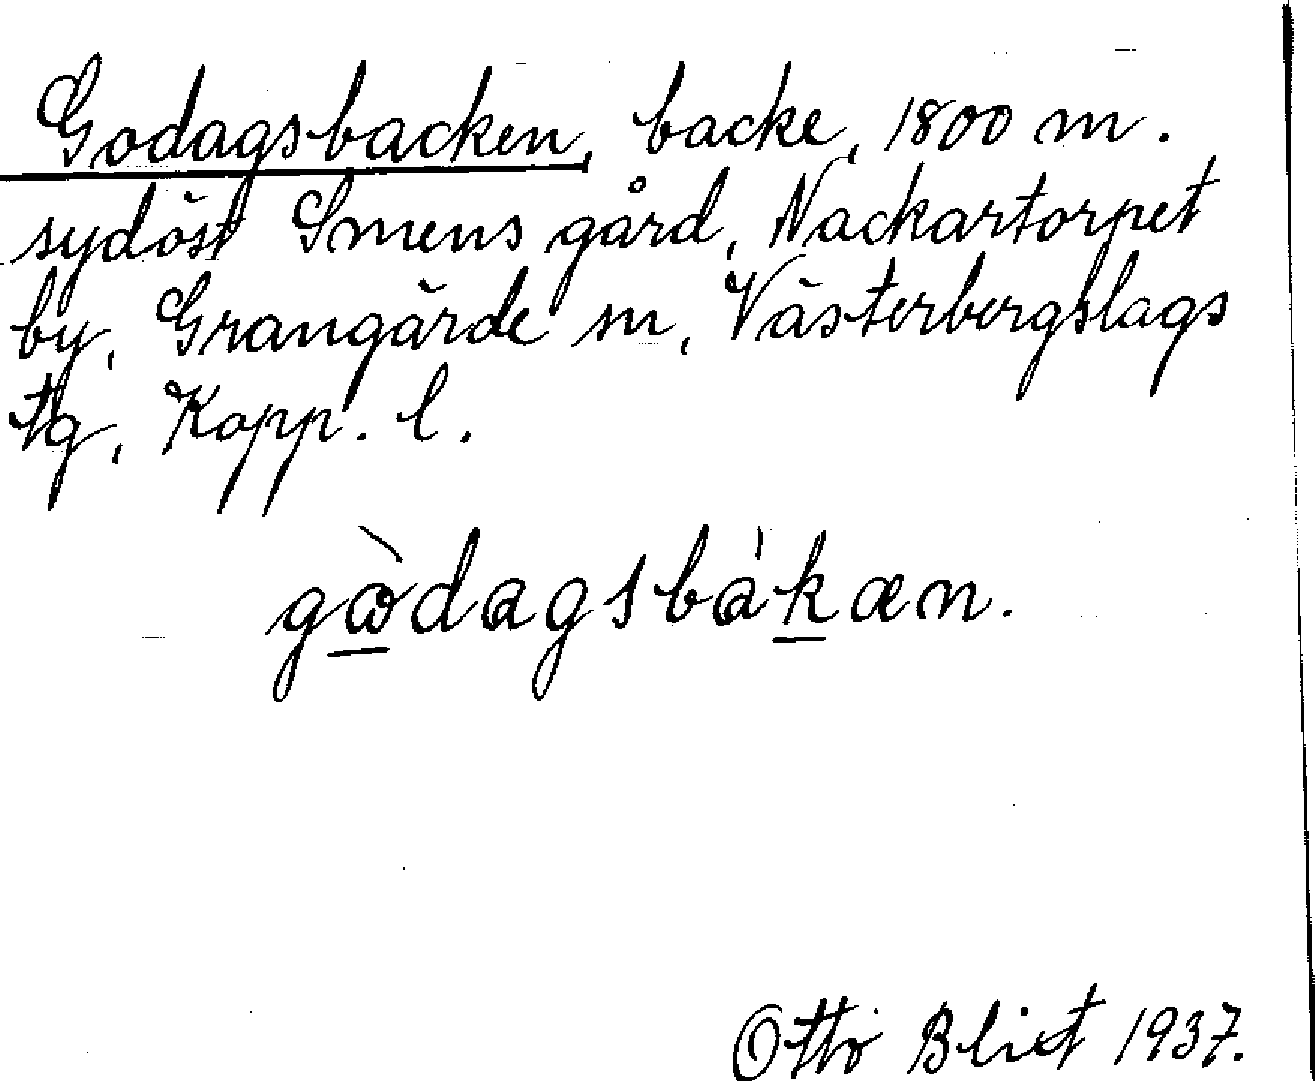 Godagsbacken, backe, 1800 m.
sydöst Smens gård, Nackartorpet
by, Grangärde sn, Västerbergslags
tg, Kopp. l.
gὼdagsbàkæn.
Otto Blixt 1937.